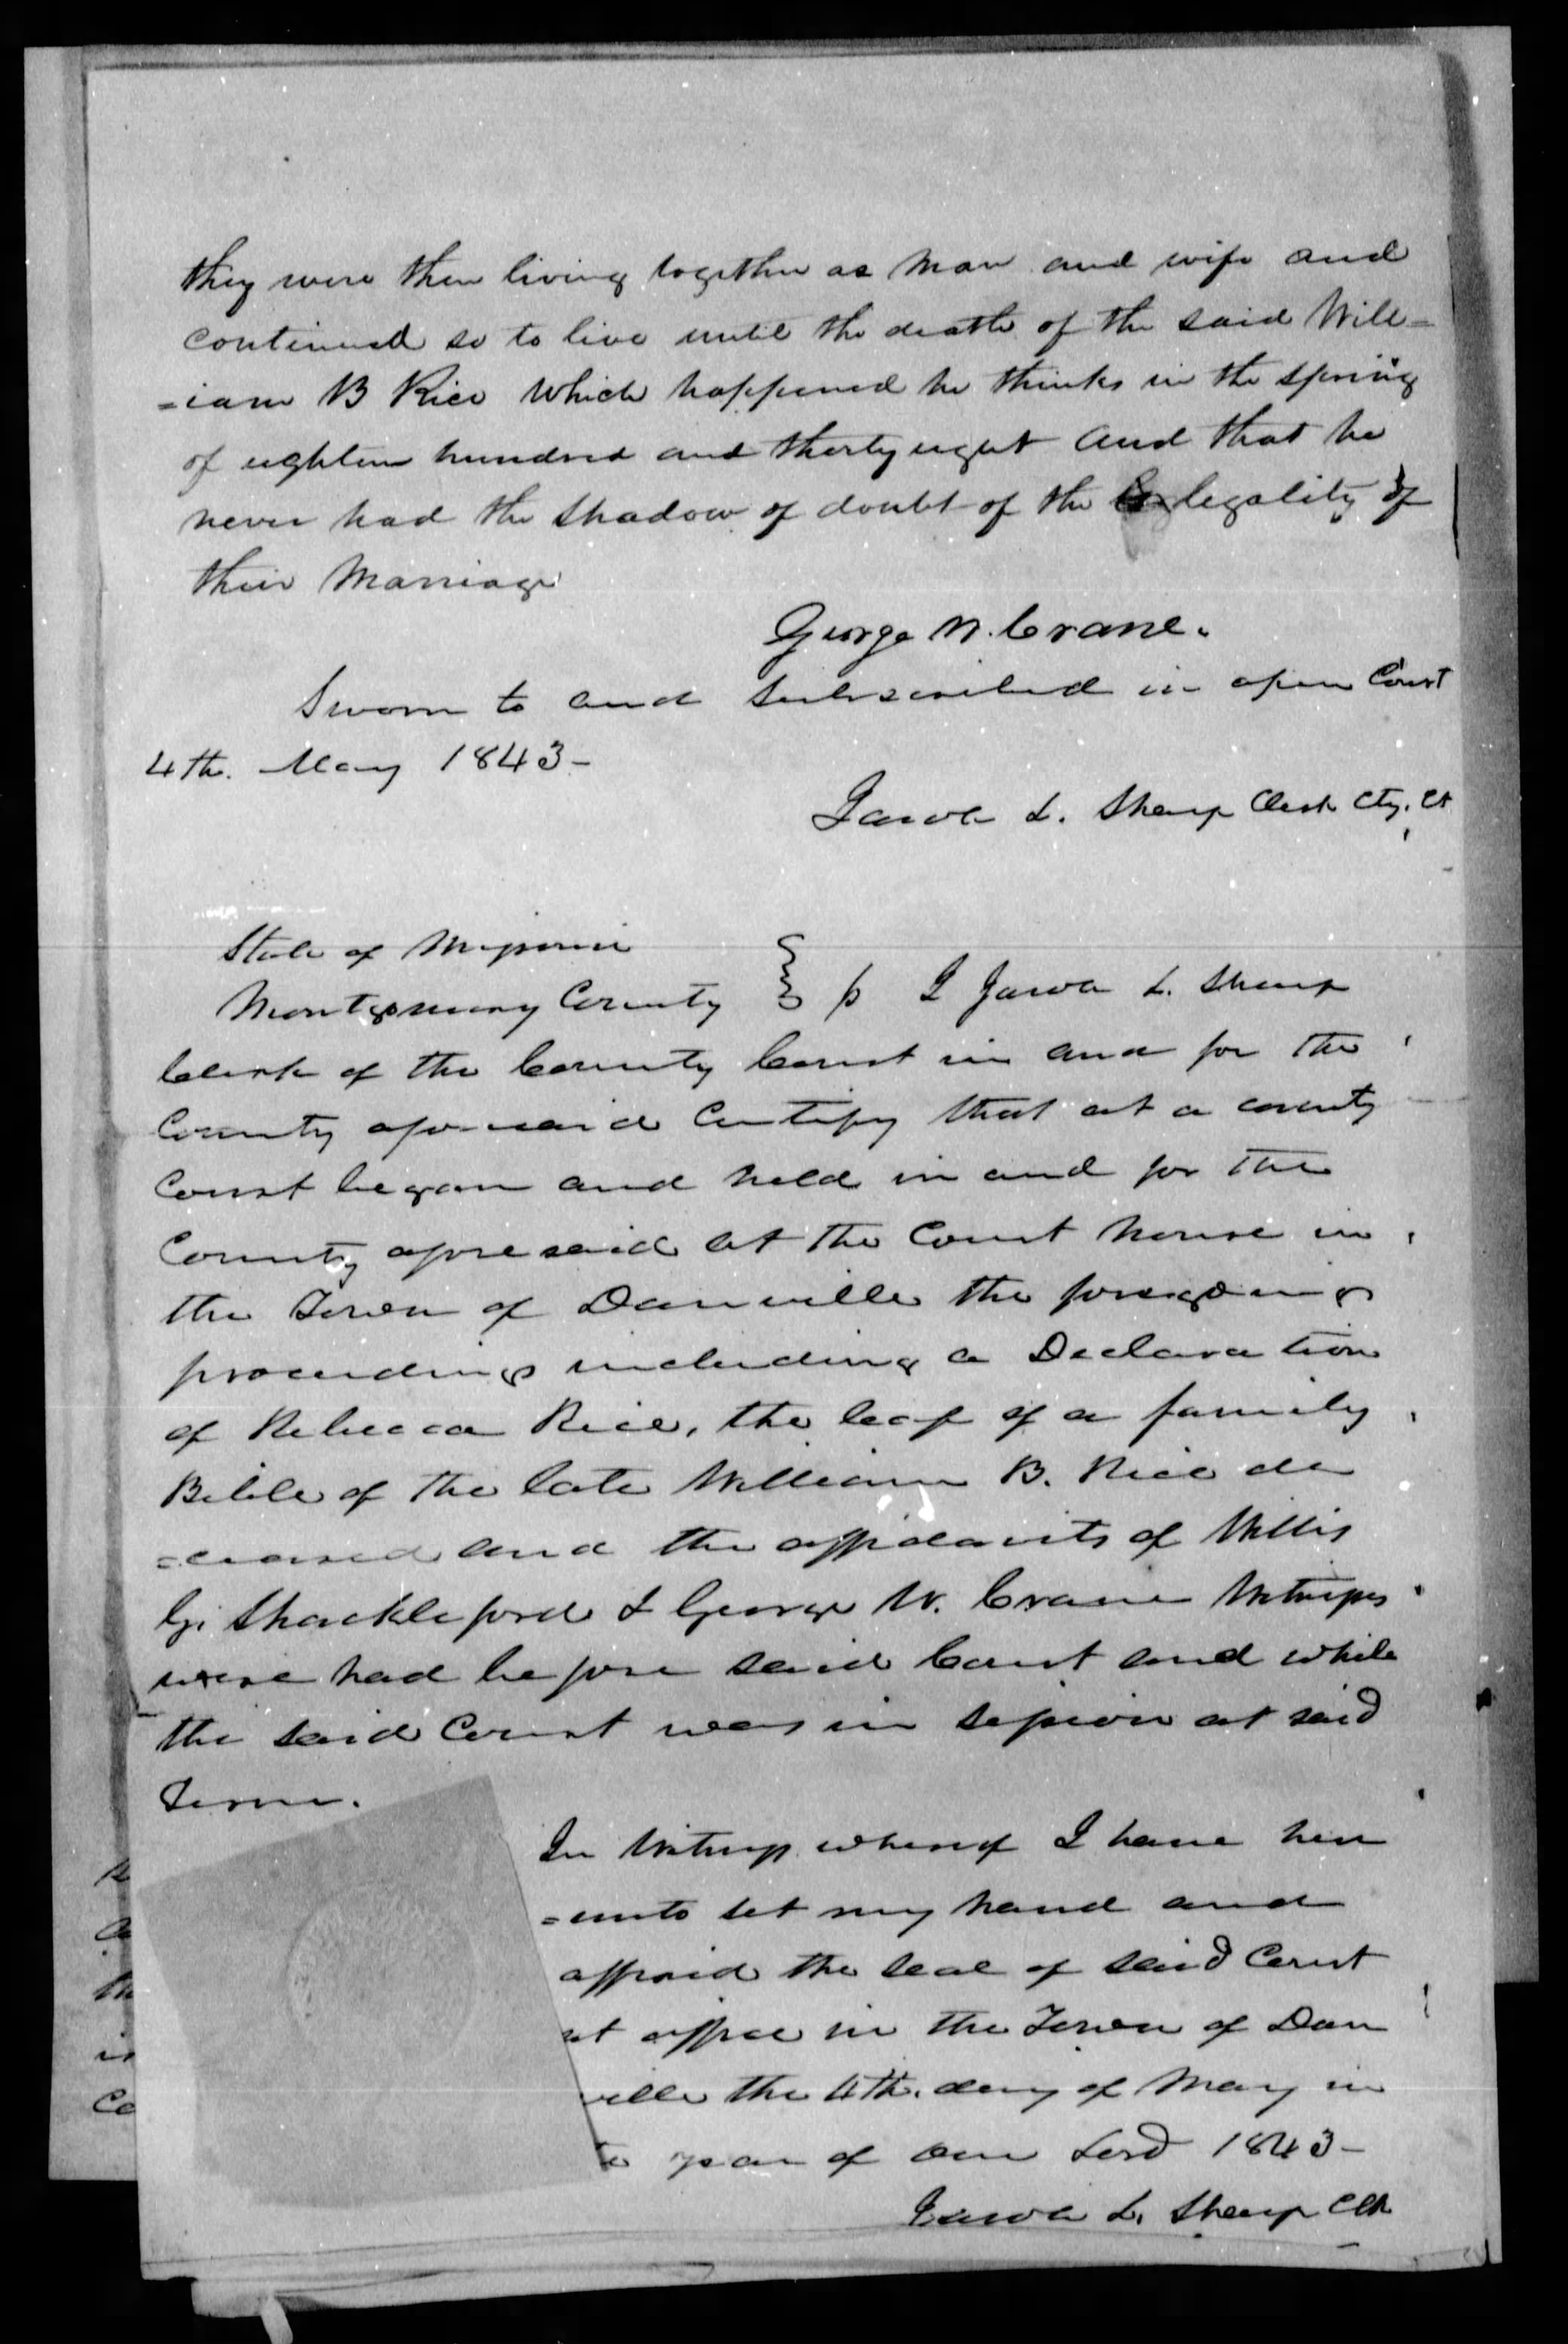 they were then living together as Man and wife and
continued so to live until the death of the said Will=
=iam B Rice Which happened he thinks in the spring
of eighteen hundred and thirty eight and that he
never had the shadow of doubt of the legality of
their Marriage
George W. Crane.
Sworn to and subscribed in open Court
4th. May 1843-
Jacob L. Sharp Clerk Cty. Ct
State of Missouri
Montgomery County } ss I Jacob L. Sharp
Clerk of the County Court in and for the
County aforesaid Certify that at a county
Court began and held in and for the
County aforesaid at the Court house in
the Town of Danville the foregoing
proceedings including a Declaration
of Rebecca Rice, the leaf of a family
Bible of the late William B. Rice de
=ceased and the affidavits of Willis
G. Shackleford & George W. Crane Witnesses
were had before said Court and while
the said Court was in session at said
Term.
In Witness whereof I have here
=unto set my hand and
affixed the seal of said Court
at office in the Town of Dan
ville the 4th. day of May in
year of our Lord 1843-
Jacob L. Sharp Clk